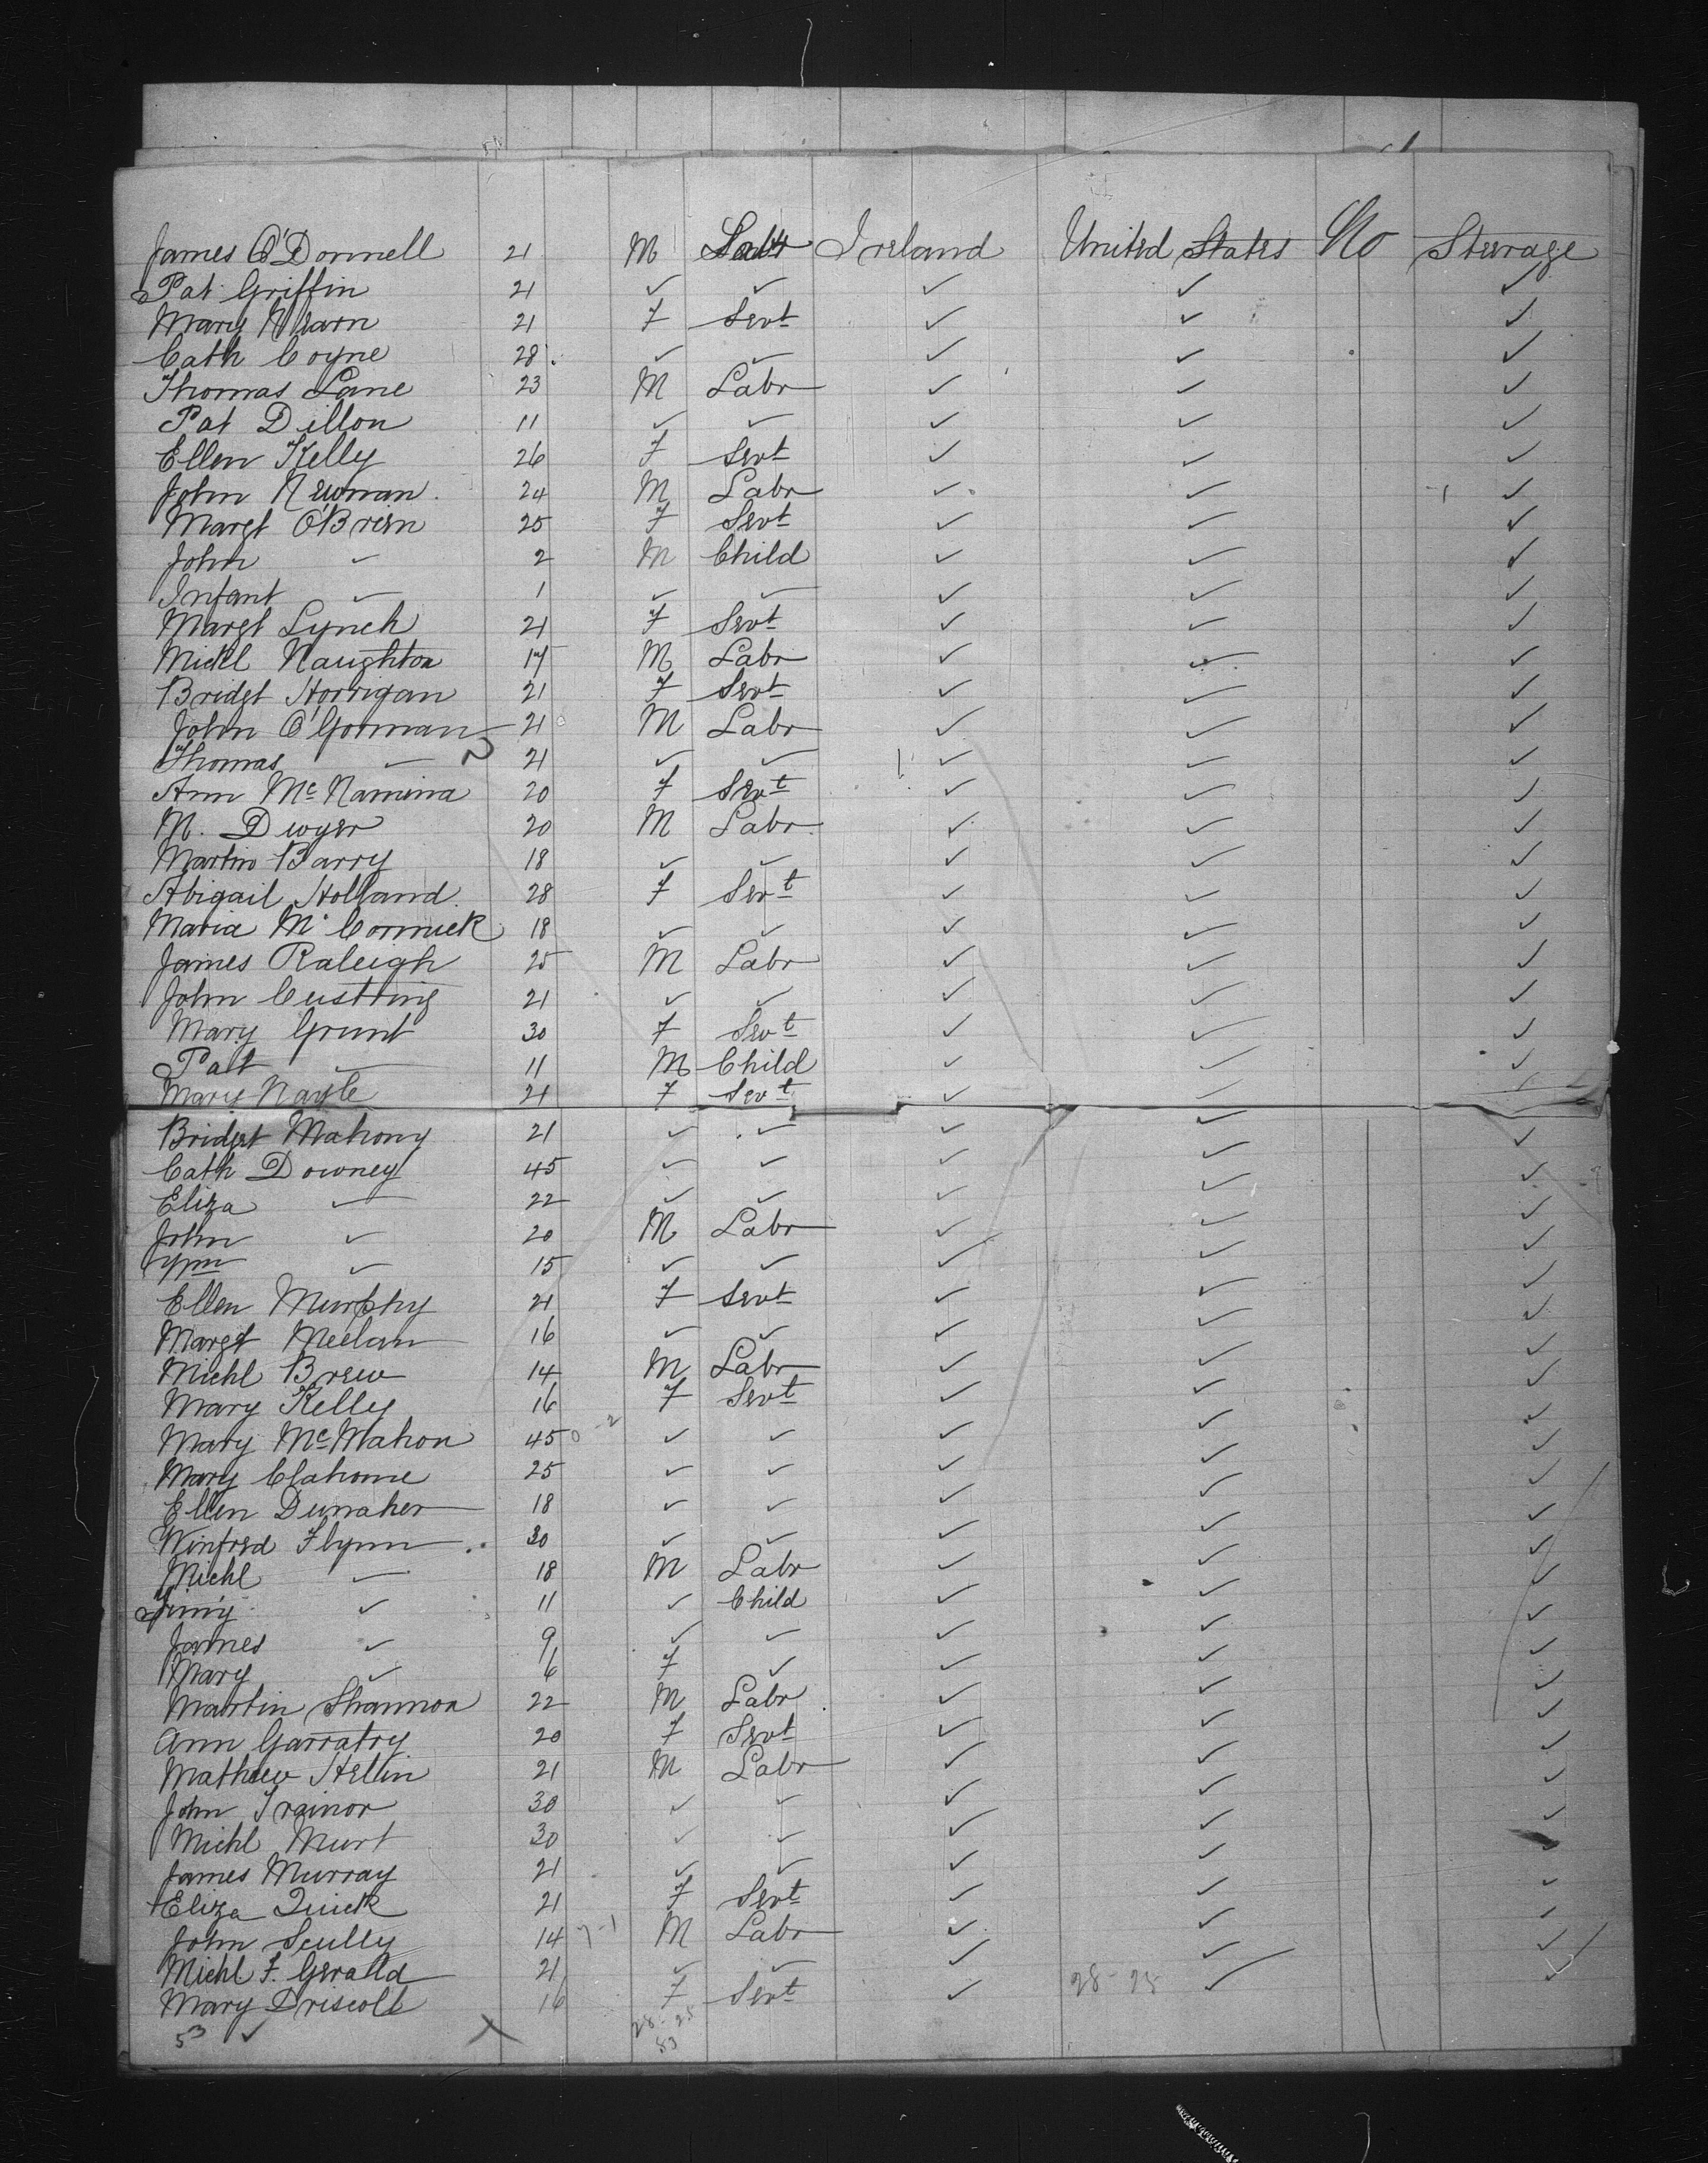 James O'Donnell 21 M Labr Ireland United States No Steerage
Pat Griffin 21 ✓ ✓ ✓ ✓ ✓
Mary Nearn 21 F Servt ✓ ✓ ✓
Cath Coyne 28 ✓ ✓ ✓ ✓ ✓
Thomas Lane 23 M Labr ✓ ✓ ✓
Pat Dillon 11 ✓ ✓ ✓ ✓ ✓
Ellen Kelly 26 F Servt ✓ ✓ ✓
John Newman 24 M Labr ✓ ✓ ✓
Margt O'Brien 25 F Servt ✓ ✓ ✓
John ✓ 2 M Child ✓ ✓ ✓
Infant ✓ 1 ✓ ✓ ✓ ✓ ✓
Margt Lynch 21 F Servt ✓ ✓ ✓
Michl Naughton 17 M Labr ✓ ✓ ✓
Bridget Horrigan 21 F Servt ✓ ✓ ✓
John O'Gorman 21 M Labr ✓ ✓ ✓
Thomas ✓ 21 ✓ ✓ ✓ ✓ ✓
Ann McNamina 20 F Servt ✓ ✓ ✓
M. Dwyer 20 M Labr ✓ ✓ ✓
Martin Barry 18 ✓ ✓ ✓ ✓ ✓
Abigail Holland 28 F Servt ✓ ✓ ✓
Maria McCormick 18 ✓ ✓ ✓ ✓ ✓
James Raleigh 25 M Labr ✓ ✓ ✓
John 21 ✓ ✓ ✓ ✓ ✓
Mary Grunt 30 F Servt ✓ ✓ ✓
Pat ✓ 11 M Child ✓ ✓ ✓
Mary Nayle 21 F Servt ✓ ✓ ✓
Bridget Mahony 21 ✓ ✓ ✓ ✓ ✓
Cath Downey 45 ✓ ✓ ✓ ✓ ✓
Eliza ✓ 22 ✓ ✓ ✓ ✓ ✓
John ✓ 20 M Labr ✓ ✓ ✓
Wm ✓ 15 ✓ ✓ ✓ ✓ ✓
Ellen Murphy 21 F Servt ✓ ✓ ✓
Margt Meelan 16 ✓ ✓ ✓ ✓ ✓
Michl Brew 14 M Labr ✓ ✓ ✓
Mary Kelly 16 F Servt ✓ ✓ ✓
Mary McMahon 45 0-2 ✓ ✓ ✓ ✓ ✓
Mary Clahome 25 ✓ ✓ ✓ ✓ ✓
Ellen Dunaher 18 ✓ ✓ ✓ ✓ ✓
Winfred Flynn 30 ✓ ✓ ✓ ✓ ✓
Michl ✓ 18 M Labr ✓ ✓ ✓
✓ 11 ✓ Child ✓ ✓ ✓
James ✓ 9 ✓ ✓ ✓ ✓ ✓
Mary ✓ 6 F ✓ ✓ ✓ ✓
Martin Shannon 22 M Labr ✓ ✓ ✓
Ann Garratry 20 F Servt ✓ ✓ ✓
Mathew Helin 21 M Labr ✓ ✓ ✓
John Trainor 30 ✓ ✓ ✓ ✓ ✓
Michl Murt 30 ✓ ✓ ✓ ✓ ✓
James Murray 21 ✓ ✓ ✓ ✓ ✓
Eliza Quick 21 F Servt ✓ ✓ ✓
John Scully 14 7-1 M Labr ✓ ✓ ✓
Michl F. Gerald 21 ✓ ✓ ✓ ✓ ✓
Mary Driscoll 16 F Servt ✓ 28-25 ✓ ✓
53 ✓ X 28-25
53